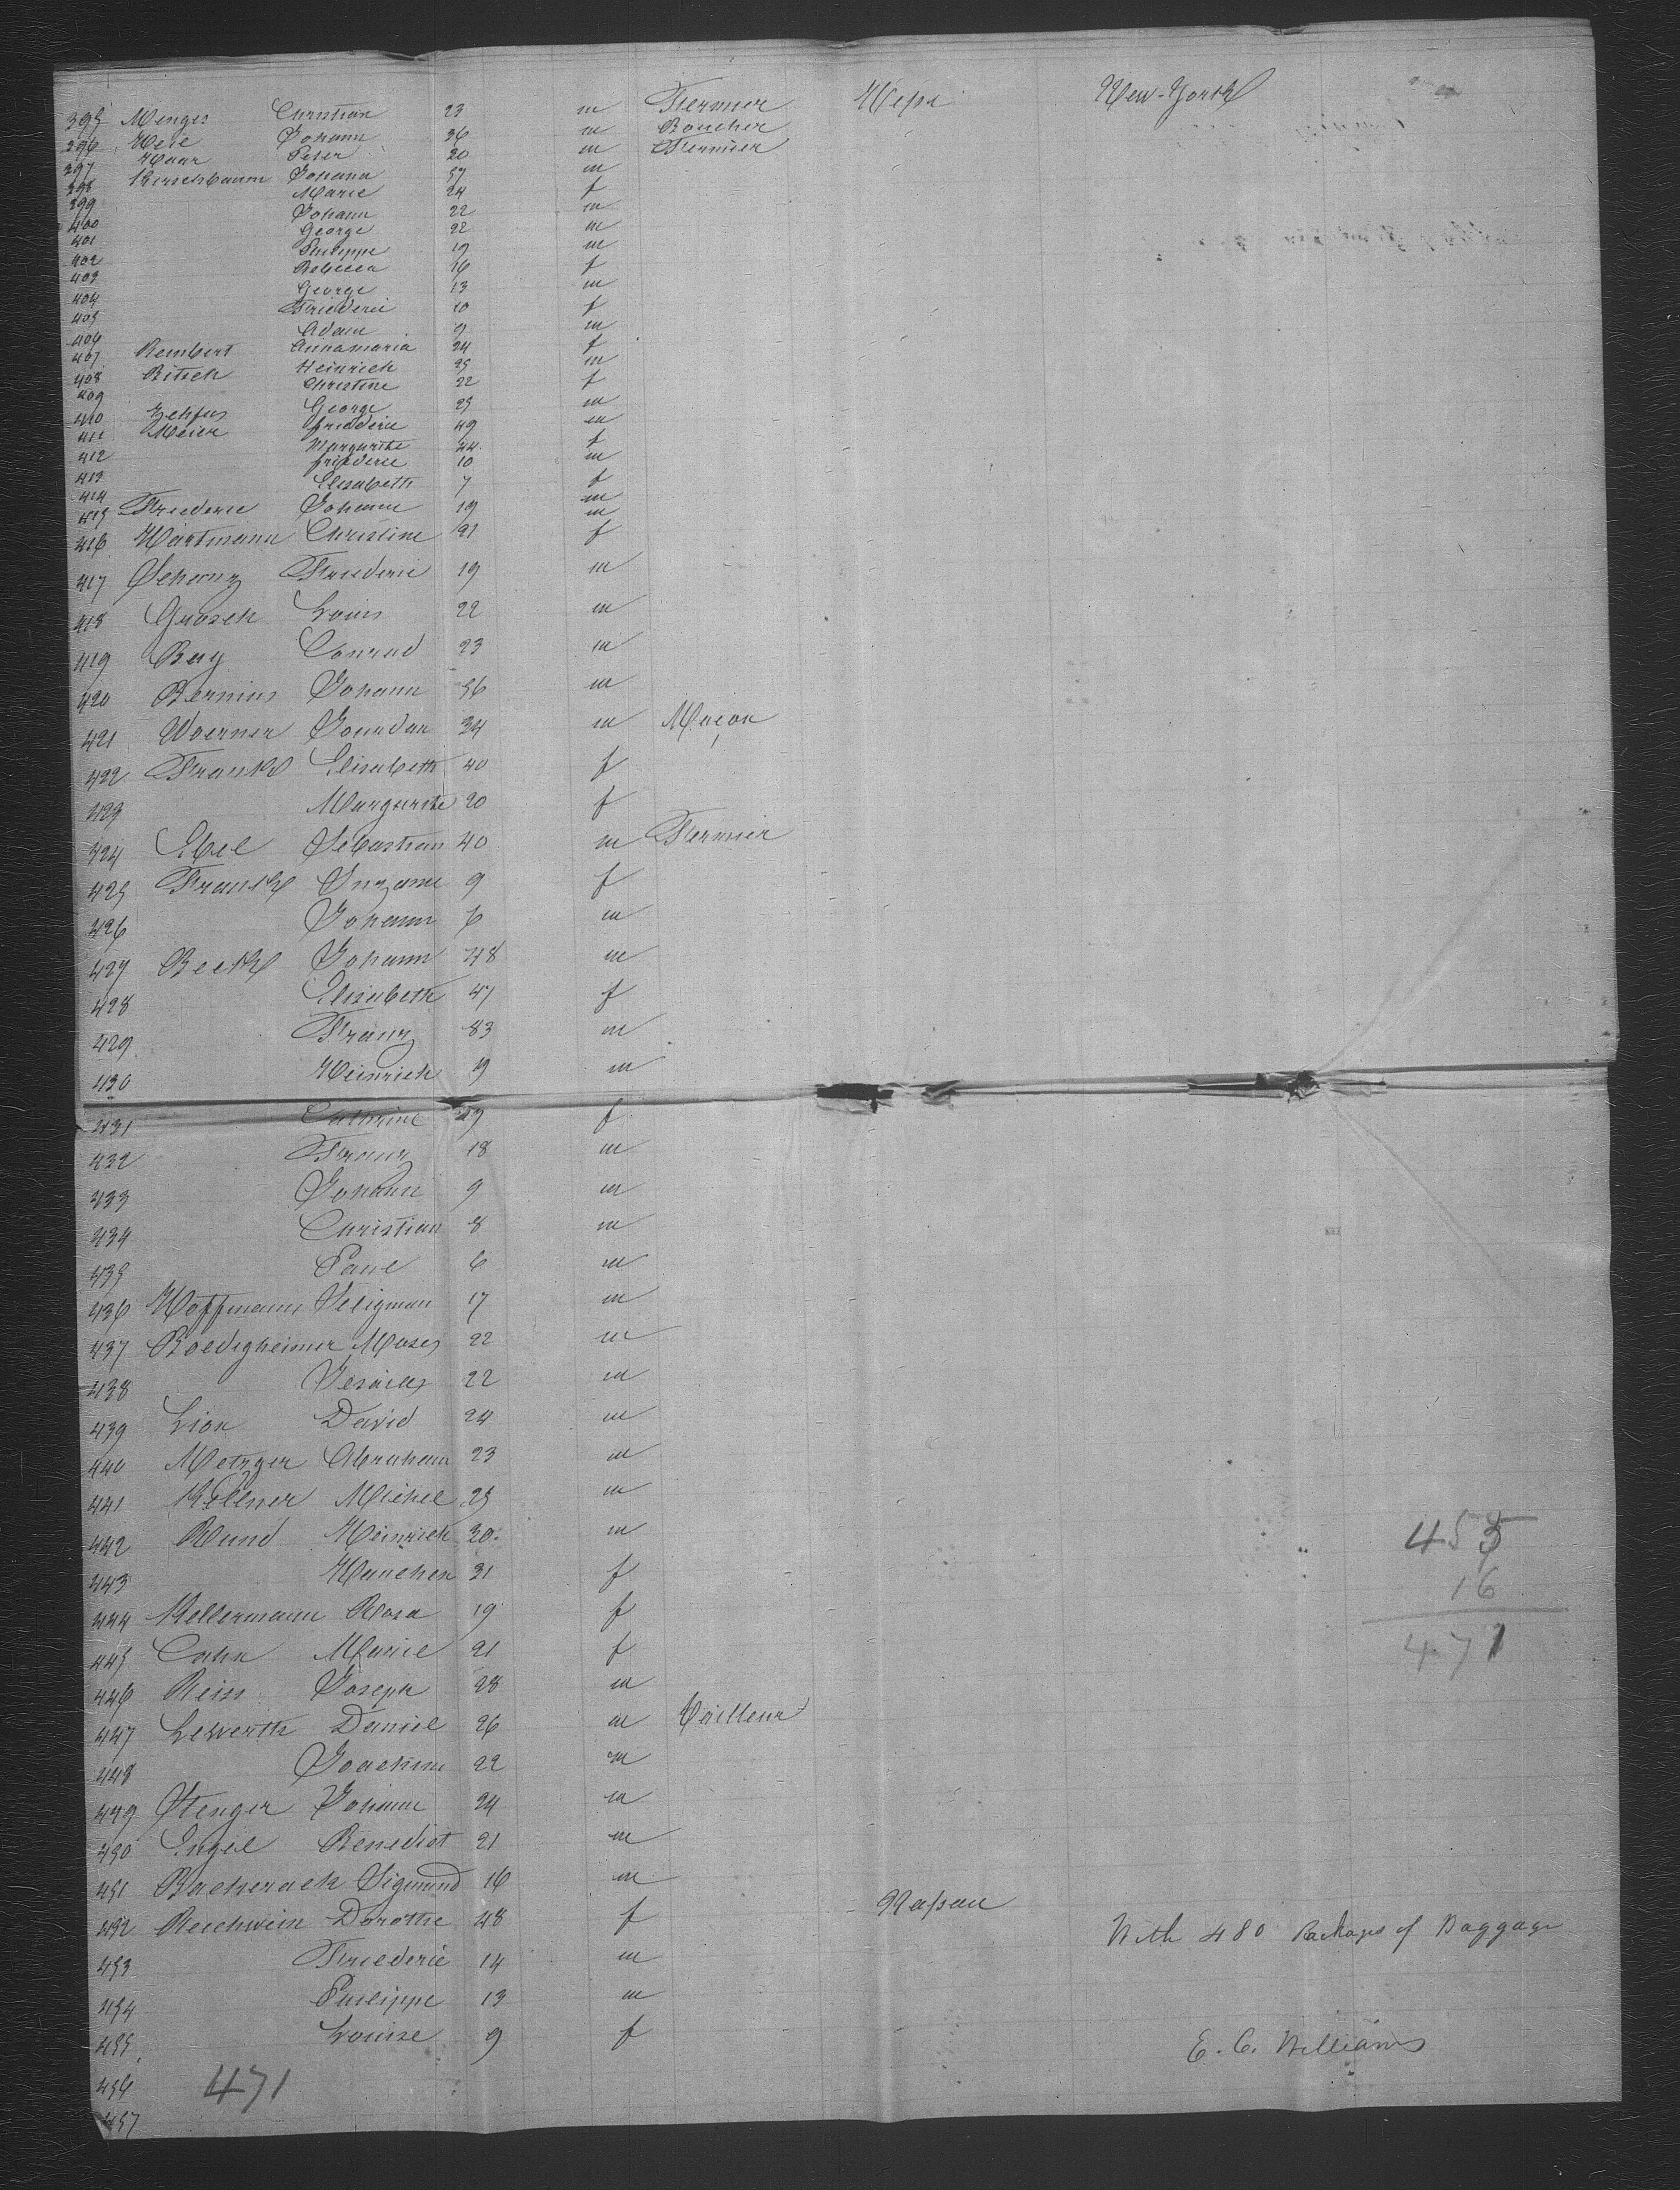 395 Menges Christian 23 m Fermier Hesse New-York
396 Heie Johann 36 m Boucher
297 Haar Peter 20 m Fermier
298 Kerschbaum Johann 57 m
299 Marie 24 f
400 Johann 22 m
401 George 22 m
402 Philippe 19 m
403 Rebecca 16 f
404 George 13 m
405 Friederic 10 f
406 Adam 9 m
407 Rembert Annamaria 24 f
408 Bitsch Heinrich 25 m
409 Christine 22 f
410 Zehfus George 25 m
411 Meier friederic 49 m
412 Margarithe 44 f
413 friederic 10 m
414 Elisabeth 7 f
415 Friederic Johann 19 m
416 Hartmann Christine 21 f
417 Schwarz Friederic 19 m
418 Grosch Louis 22 m
419 Bay Conrad 23 m
420 Bernius Johann 56 m
421 Woerner Jourdan 34 m Maçon
422 Frank Elisabeth 40 f
423 Margarithe 20 f
424 Ebel Sebastian 40 m Fermier
425 Frank Suzanne 9 f
426 Johann 6 m
427 Beck Johann 48 m
428 Elisabeth 47 f
429 Franz 83 m
430 Heinrich 19 m
431 Cathrine f
432 Franz 18 m
433 Johann 9 m
434 Christian 8 m
435 Paul 6 m
436 Hoffmann Seligman 17 m
437 Boedigheimer Moses 22 m
438 22 m
439 Lion David 24 m
440 Metzger Abraham 23 m
441 Kellner Michel 25 m
442 Rund Heinrich 30 m
443 Hanchen 31 f
444 Kellermann Rosa 19 f
445 Cahn Marie 21 f
446 Reiss Joseph 28 m
447 Lewerth Daniel 26 m Tailleur
448 Joachim 22 m
449 Stenger Johann 24 m
450 Engel Benedict 21 m
451 Bacherach Sigmund 16 m
452 Reichwein Dorothe 48 f Nassau
With 480 Packages of Baggage
453 Friederic 14 m
454 Philippe 13 m
455 Louise 9 f
E. C. Williams
456
457
471
455
16
471